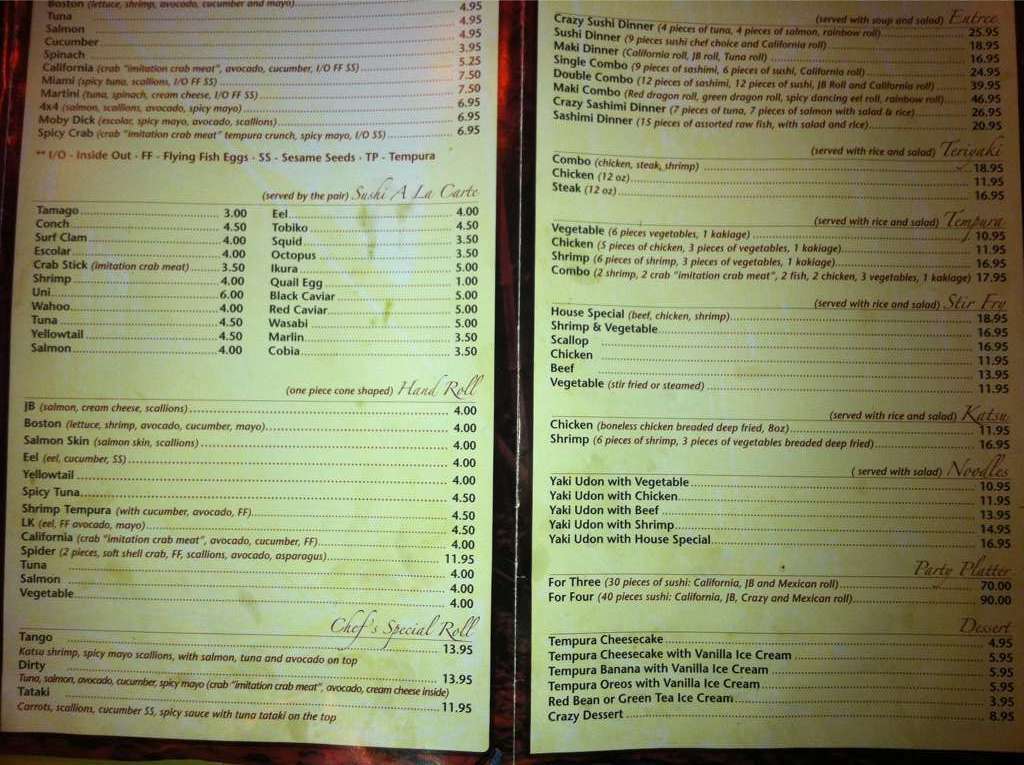 Boston (lettuce, shrimp, avocado, cucumber and mayo) 4.95
Tuna 4.95
Salmon 4.95
Cucumber 3.95
Spinach 5.25
California (crab "imitation crab meat", avocado, cucumber, I/O FF SS) 7.50
Miami (spicy tuna, scallions, I/O FF SS)
Martini (tuna, spinach, cream cheese, I/O FF SS) 7.50
4x4 (salmon, scallions, avocado, spicy mayo) 6.95
Moby Dick (escolar, spicy mayo, avocado, scallions) 6.95
Spicy Crab (crab "imitation crab meat" tempura crunch, spicy mayo, I/O SS) 6.95
** I/O - Inside Out · FF - Flying Fish Eggs · SS - Sesame Seeds · TP - Tempura
(served by the pair) Sushi A La Carte
Tamago 3.00
Conch 4.50
Surf Clam 4.00
Escolar 4.00
Crab Stick (imitation crab meat) 3.50
Shrimp 4.00
Uni 6.00
Wahoo 4.00
Tuna 4.50
Yellowtail 4.50
Salmon 4.00
Eel 4.00
Tobiko 4.50
Squid 3.50
Octopus 3.50
Ikura 5.00
Quail Egg 1.00
Black Caviar 5.00
Red Caviar 5.00
Wasabi 5.00
Marlin 3.50
Cobia 3.50
(one piece cone shaped) Hand Roll
JB (salmon, cream cheese, scallions) 4.00
Boston (lettuce, shrimp, avocado, cucumber, mayo) 4.00
Salmon Skin (salmon skin, scallions) 4.00
Eel (eel, cucumber, SS) 4.00
Yellowtail 4.00
Spicy Tuna 4.50
Shrimp Tempura (with cucumber, avocado, FF) 4.50
LK (eel, FF avocado, mayo) 4.50
California (crab "imitation crab meat", avocado, cucumber, FF) 4.00
Spider (2 pieces, soft shell crab, FF, scallions, avocado, asparagus) 11.95
Tuna 4.00
Salmon 4.00
Vegetable 4.00
Chef's Special Roll
Tango 13.95
Katsu shrimp, spicy mayo scallions, with salmon, tuna and avocado on top
Dirty 13.95
Tuna, salmon, avocado, cucumber, spicy mayo (crab "imitation crab meat", avocado, cream cheese inside)
Tataki 11.95
Carrots, scallions, cucumber SS, spicy sauce with tuna tataki on the top
(served with soup and salad) Entree
Crazy Sushi Dinner (4 pieces of tuna, 4 pieces of salmon, rainbow roll) 25.95
Sushi Dinner (9 pieces sushi chef choice and California roll) 18.95
Maki Dinner (California roll, JB roll, Tuna roll) 16.95
Single Combo (9 pieces of sashimi, 6 pieces of sushi, California roll) 24.95
Double Combo (12 pieces of sashimi, 12 pieces of sushi, JB Roll and California roll) 39.95
Maki Combo (Red dragon roll, green dragon roll, spicy dancing eel roll, rainbow roll) 46.95
Crazy Sashimi Dinner (7 pieces of tuna, 7 pieces of salmon with salad & rice) 26.95
Sashimi Dinner (15 pieces of assorted raw fish, with salad and rice) 20.95
(served with rice and salad) Teriyaki
Combo (chicken, steak, shrimp) 18.95
Chicken (12 oz) 11.95
Steak (12 oz) 16.95
(served with rice and salad) Tempura
Vegetable (6 pieces vegetables, 1 kakiage) 10.95
Chicken (5 pieces of chicken, 3 pieces of vegetables, 1 kakiage) 11.95
Shrimp (6 pieces of shrimp, 3 pieces of vegetables, 1 kakiage) 16.95
Combo (2 shrimp, 2 crab "imitation crab meat", 2 fish, 2 chicken, 3 vegetables, 1 kakiage) 17.95
(served with rice and salad) Stir Fry
House Special (beef, chicken, shrimp) 18.95
Shrimp & Vegetable 16.95
Scallop 16.95
Chicken 11.95
Beef 13.95
Vegetable (stir fried or steamed) 11.95
(served with rice and salad) Katsu
Chicken (boneless chicken breaded deep fried, 8oz) 11.95
Shrimp (6 pieces of shrimp, 3 pieces of vegetables breaded deep fried) 16.95
( served with salad) Noodles
Yaki Udon with Vegetable 10.95
Yaki Udon with Chicken 11.95
Yaki Udon with Beef 13.95
Yaki Udon with Shrimp 14.95
Yaki Udon with House Special 16.95
Party Platter
For Three (30 pieces of sushi: California, JB and Mexican roll) 70.00
For Four (40 pieces sushi: California, JB, Crazy and Mexican roll) 90.00
Dessert
Tempura Cheesecake 4.95
Tempura Cheesecake with Vanilla Ice Cream 5.95
Tempura Banana with Vanilla Ice Cream 5.95
Tempura Oreos with Vanilla Ice Cream 5.95
Red Bean or Green Tea Ice Cream 3.95
Crazy Dessert 8.95